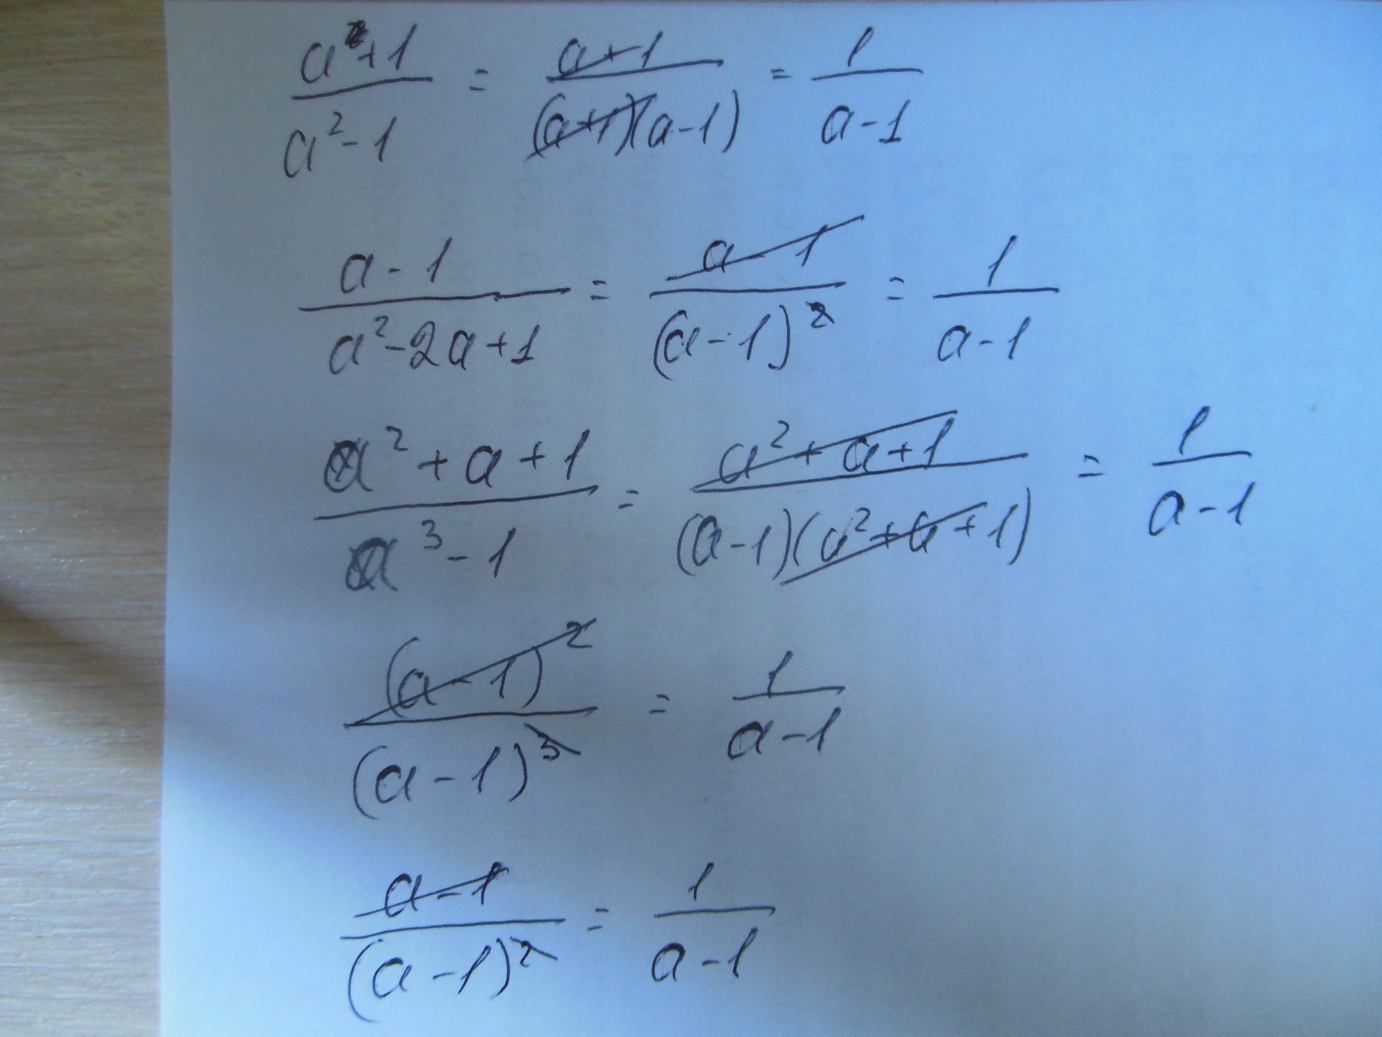 (a+1)/(a²-1) = (a+1)/((a+1)(a-1)) = 1/(a-1)
(a-1)/(a²-2a+1) = (a-1)/(a-1)² = 1/(a-1)
(a²+a+1)/(a³-1) = (a²+a+1)/((a-1)(a²+a+1)) = 1/(a-1)
(a-1)²/(a-1)³ = 1/(a-1)
(a-1)/(a-1)² = 1/(a-1)